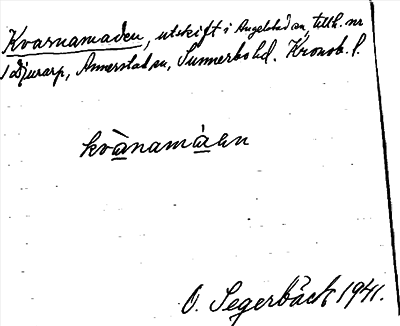 Kvarnamaden, utskift i Angelstad sn, tillh. nr
1 Djurarp, Annerstad sn, Sunnerbo hd. Kronob. l.
kvànamàen
O. Segerbäck 1941.